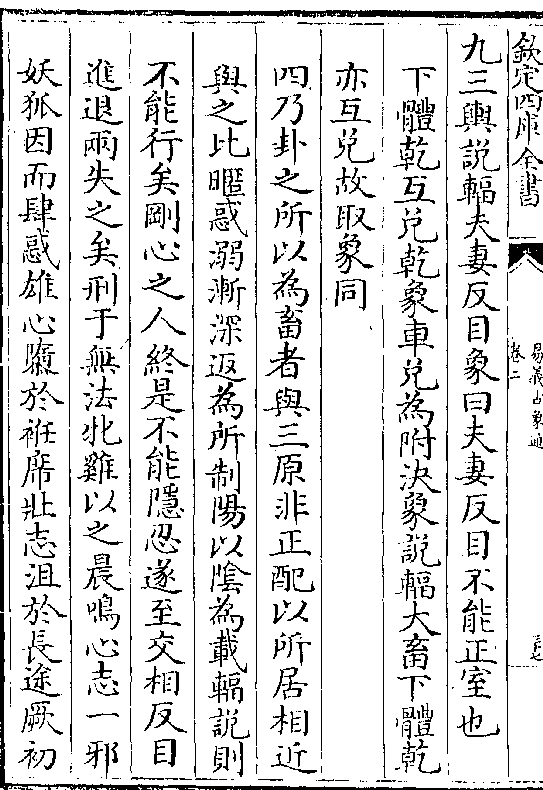 欽定四庫全書
易義古象通
卷二
九三輿說輻夫妻反目象曰夫妻反目不能正室也
下體乾互兌乾象車兌為附決象說輻大畜下體乾
亦互兌故取象同
四乃卦之所以為畜者與三原非正配以所居相近
與之比暱惑溺漸深返為所制陽以陰為載輻說則
不能行矣剛心之人終是不能隱忍遂至交相反目
進退兩失之矣刑于無法牝雞以之晨鳴心志一邪
妖狐因而肆惑雄心隳於袵席壯志沮於長途厥初